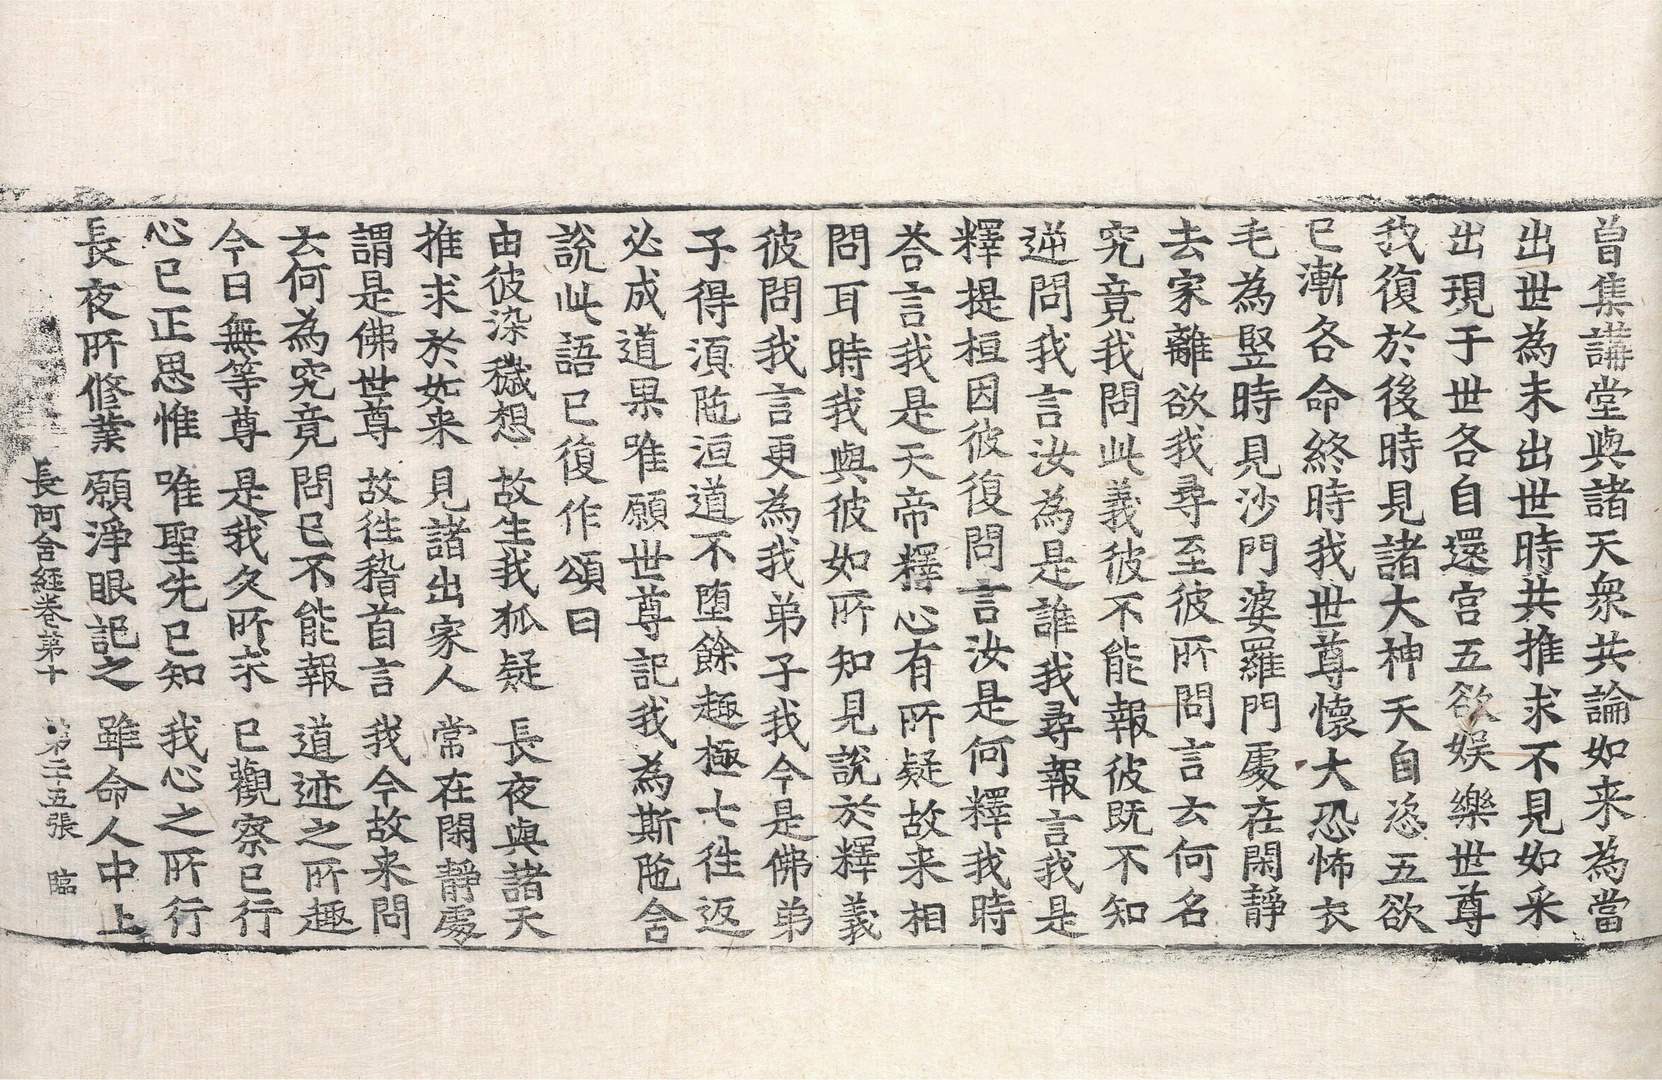 曽集講堂與諸天衆共論如来為當
出世為未出世時共推求不見如来
出現于世各自還宫五欲娱樂世尊
我復於後時見諸大神天自恣五欲
已漸各命終時我世尊懷大恐怖衣
毛為竪時見沙門婆羅門處在閑靜
去家離欲我尋至彼所問言云何名
究竟我問此義彼不能報彼既不知
逆問我言汝為是誰我尋報言我是
釋提桓因彼復問言汝是何釋我時
荅言我是天帝釋心有所疑故来相
問耳時我與彼如所知見說於釋義
彼問我言更為我弟子我今是佛弟
子得湏陁洹道不堕餘趣極七徃返
必成道果唯願世尊記我為斯陁含
說此語已復作頌曰
由彼染穢想 故生我狐疑 長夜與諸天
推求於如来 見諸出家人 常在閑靜處
謂是佛世尊 故徃稽首言 我今故来問
云何為究竟 問已不能報 道迹之所趣
今日無等尊 是我久所求 已觀察已行
心已正思惟 唯聖先已知 我心之所行
長夜所修業 願淨眼記之 雖命人中上
長阿含經卷第十 第二五張 臨